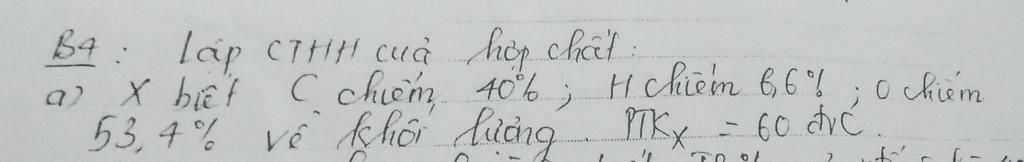 B4: Lập CTHH của hợp chất:
a) X biết C chiếm 40%; H chiếm 6,6%; O chiếm
53,4% về khối lượng. PTKX = 60 đvC.